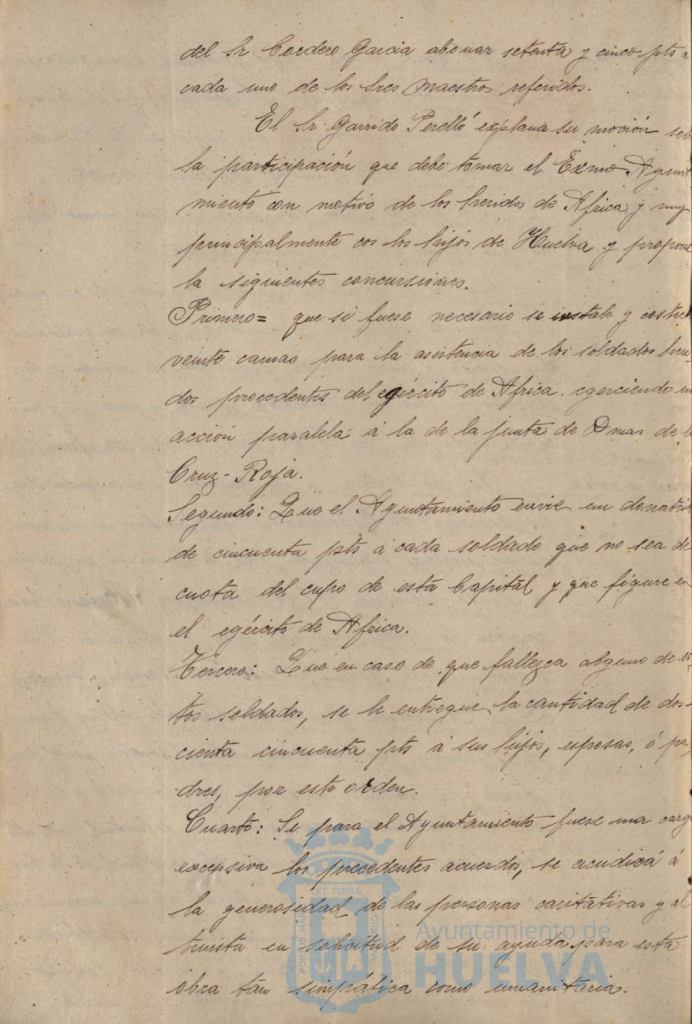 del Sr Cordero Garcia abonar setenta y cinco pts a
cada uno de los tres Maestros referidos.
El Sr Garrido Perelló explana su moción sob
la participación que debe tomar el Exmo Ayunt
miento con motivo de los heridos de Africa y muy
principalmente con los hijos de Huelva y propone
la siguientes concursiones.
Primero= que si fuese necesario se instale y costee
veinte camas para la asistencia de los soldados heri
dos procedentes del egército de Africa. egerciendo un
acción paralela á la de la junta de Dmas de l
Cruz-Roja.
Segundo: Que el Ayuntamiento envie un donativ
de cincuenta pts a cada soldado que no sea de
cuota del cupo de esta Capital y que figure en
el egército de Africa.
Tercero: Que en caso de que fallezca alguno de es
tos soldados, se le entregue la cantidad de dos-
cienta cincuenta pts á sus hijos, esposas, ó pa
dres, por este orden.
Cuarto: Si para el Ayuntamiento fuese una carg
excepsiva los precedentes acuerdos, se acudirá á
la generosidad de las personas caritativas y al
truista en solicitud de su ayuda para esta
obra tan simpática como umanitaria.
Ayuntamiento de
HUELVA